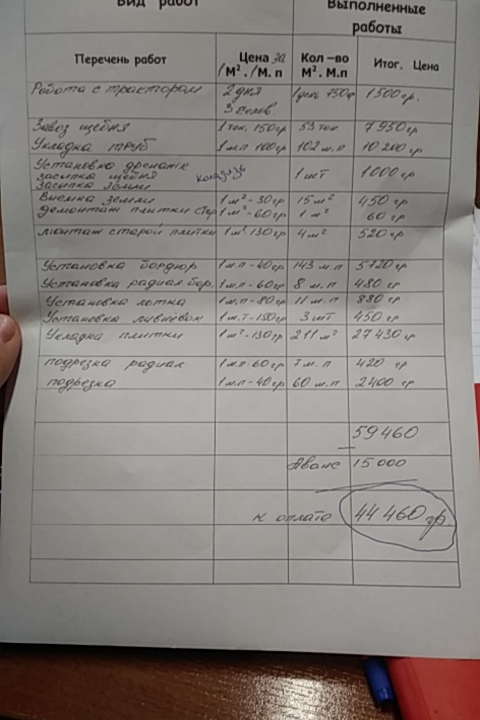 Вид работ Выполненные
работы
Перечень работ Цена за /М². /М. п Кол –во М². М.п Итог. Цена
Работа с трактором 2 дня 3 челов. 1 день 750гр 1500 гр.
Завоз щебня 1 тон. 150гр 53 тон. 7950 гр
Укладка труб 1 м.п 100гр 102 м.п 10 200 гр
Установка дренаже колодязь
засыпка щебня 1 шт 1000 гр
засыпка земли
Выемка земли 1 м² - 30 гр 15 м² 450 гр
демонтаж плитки стар 1 м² - 60 гр 1 м² 60 гр
монтаж старой плитки 1 м² 130 гр 4 м² 520 гр
Установка бордюр 1 м.п - 40 гр 143 м.п 5720 гр
Установка радиал бор. 1 м.п - 60 гр 8 м.п 480 гр
Установка лотка 1 м.п - 80 гр 11 м.п 880 гр
Установка ливнёвок 1 шт - 150 гр 3 шт 450 гр
Укладка плитки 1 м² - 130 гр 211 м² 27 430 гр
подрезка радиал 1 м.п - 60 гр 7 м.п 420 гр
подрезка 1 м.п - 40 гр 60 м.п 2400 гр
59460
Аванс 15 000
к оплате 44 460 гр